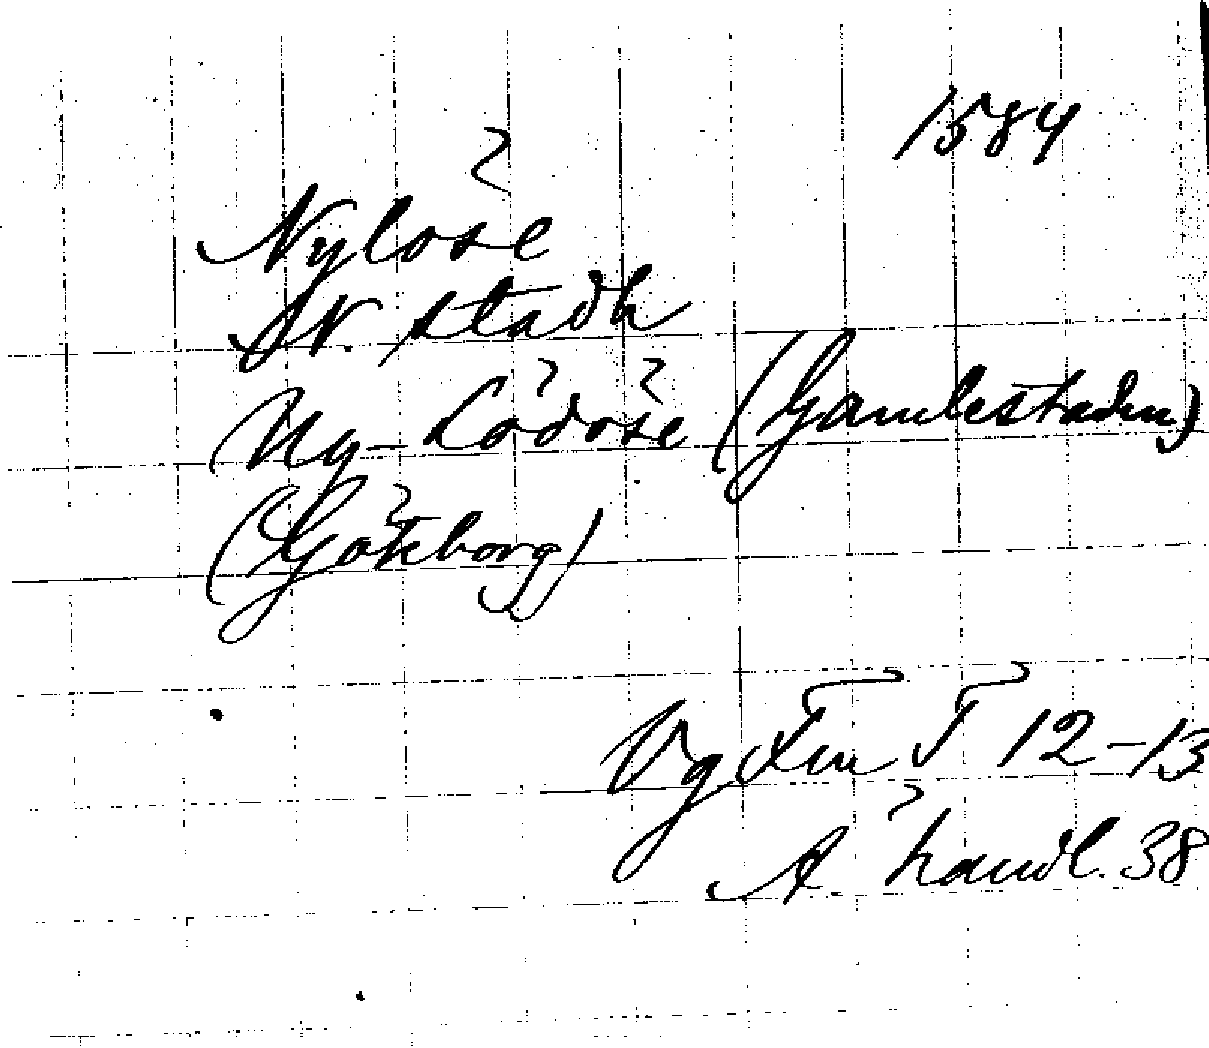 1584
Nylöse
N. stadh
Ny-Lödöse (Gamlestaden)
(Göteborg)
Vg Fm T 12-13
A. handl. 38